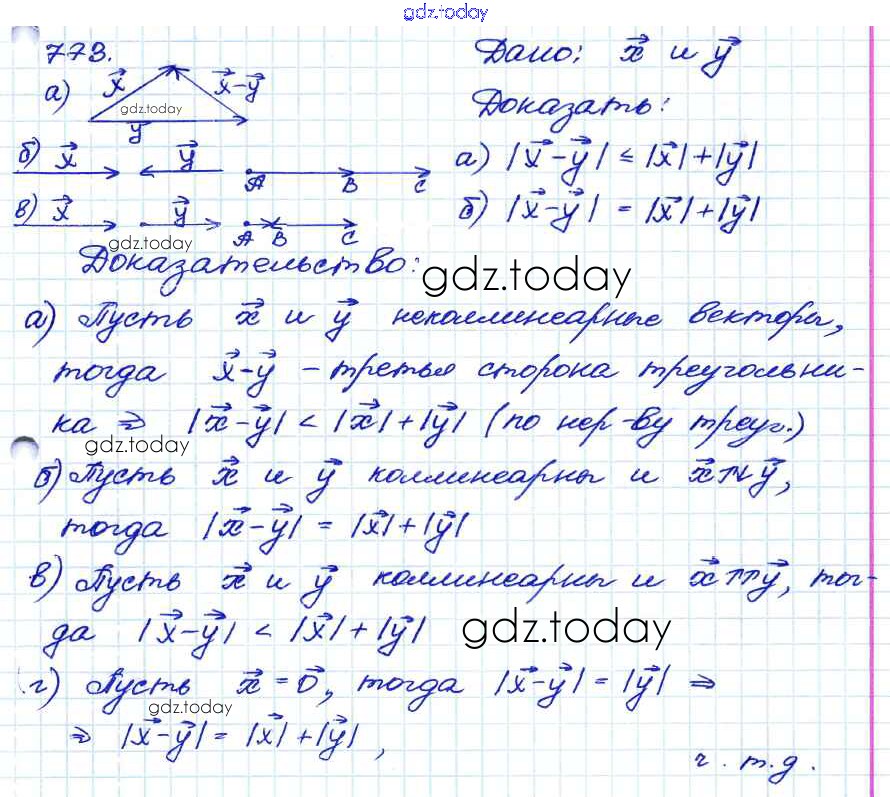 gdz.today
773.
Дано: x⃗ и y⃗
а) x⃗ x⃗-y⃗
gdz.today
y⃗
Доказать:
б) x⃗ y⃗ A B C
а) |x⃗-y⃗| ≤ |x⃗|+|y⃗|
в) x⃗ y⃗ A B C
б) |x⃗-y⃗| = |x⃗|+|y⃗|
gdz.today
Доказательство:
gdz.today
а) Пусть x⃗ и y⃗ неколлинеарные векторы,
тогда x⃗-y⃗ - третья сторона треугольни-
ка ⇒ |x⃗-y⃗| < |x⃗|+|y⃗| (по нер-ву треуг.)
gdz.today
б) Пусть x⃗ и y⃗ коллинеарны и x⃗↑↓y⃗,
тогда |x⃗-y⃗| = |x⃗|+|y⃗|
в) Пусть x⃗ и y⃗ коллинеарны и x⃗↑↑y⃗, тог-
да |x⃗-y⃗| < |x⃗|+|y⃗|
gdz.today
г) Пусть x⃗ = 0⃗, тогда |x⃗-y⃗| = |y⃗| ⇒
gdz.today
⇒ |x⃗-y⃗| = |x⃗|+|y⃗|,
ч.т.д.